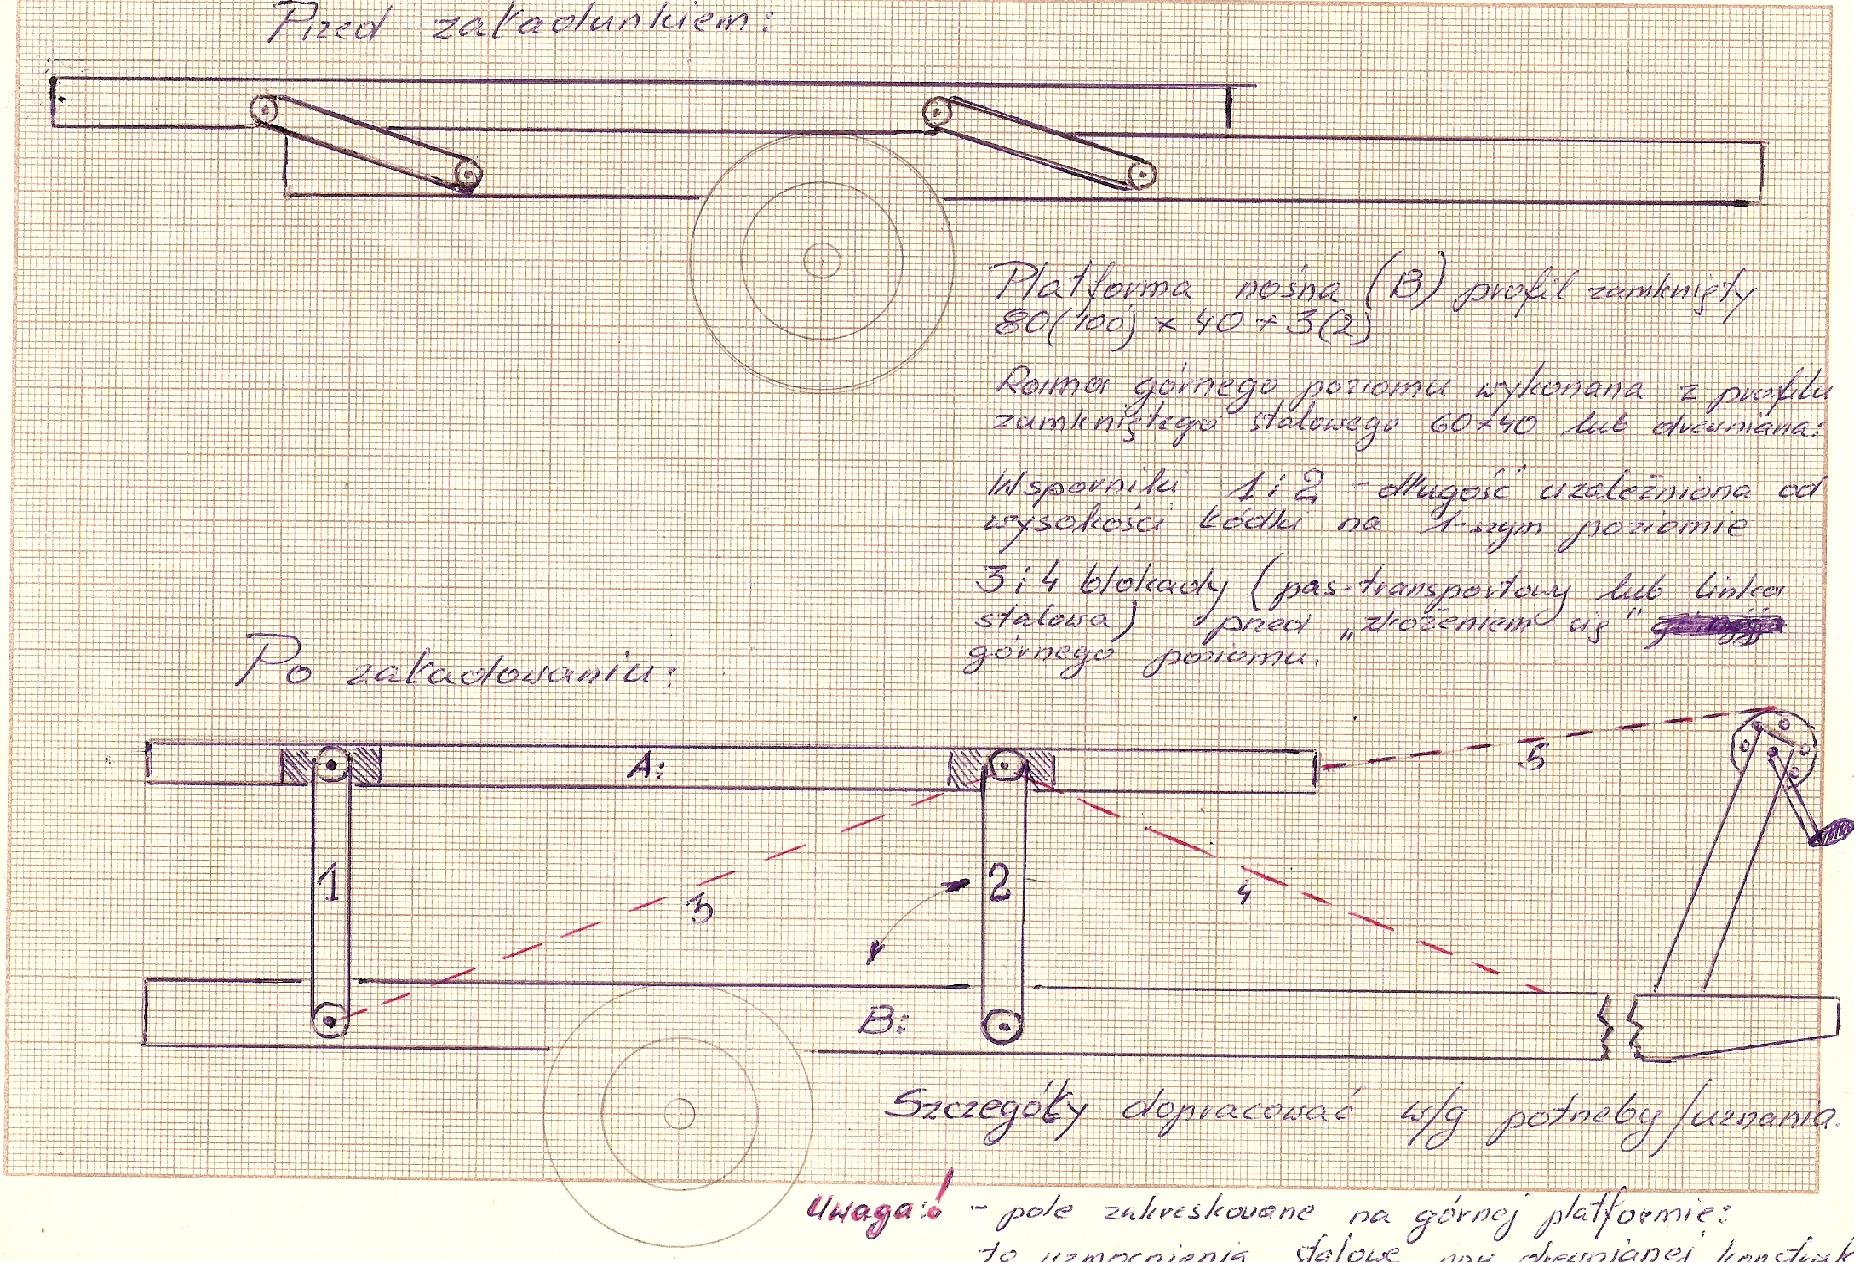 Przed załadunkiem:
Platforma nośna (B) profil zamknięty
80(100) x 40 x 3(2)
Rama górnego poziomu wykonana z profilu
zamkniętego stalowego 60x40 lub drewniana:
Wsporniki 1 i 2 - długość uzależniona od
wysokości łódki na 1-szym poziomie
3 i 4 blokady (pas-transportowy lub linka
stalowa) przed „złożeniem się"
górnego poziomu.
Po załadowaniu:
A:
5
1
2
3
4
B:
Szczegóły dopracować w/g potrzeby/uznania.
Uwaga! - pole zakreskowane na górnej platformie:
to wzmocnienia stalowe przy drewnianej konstruk